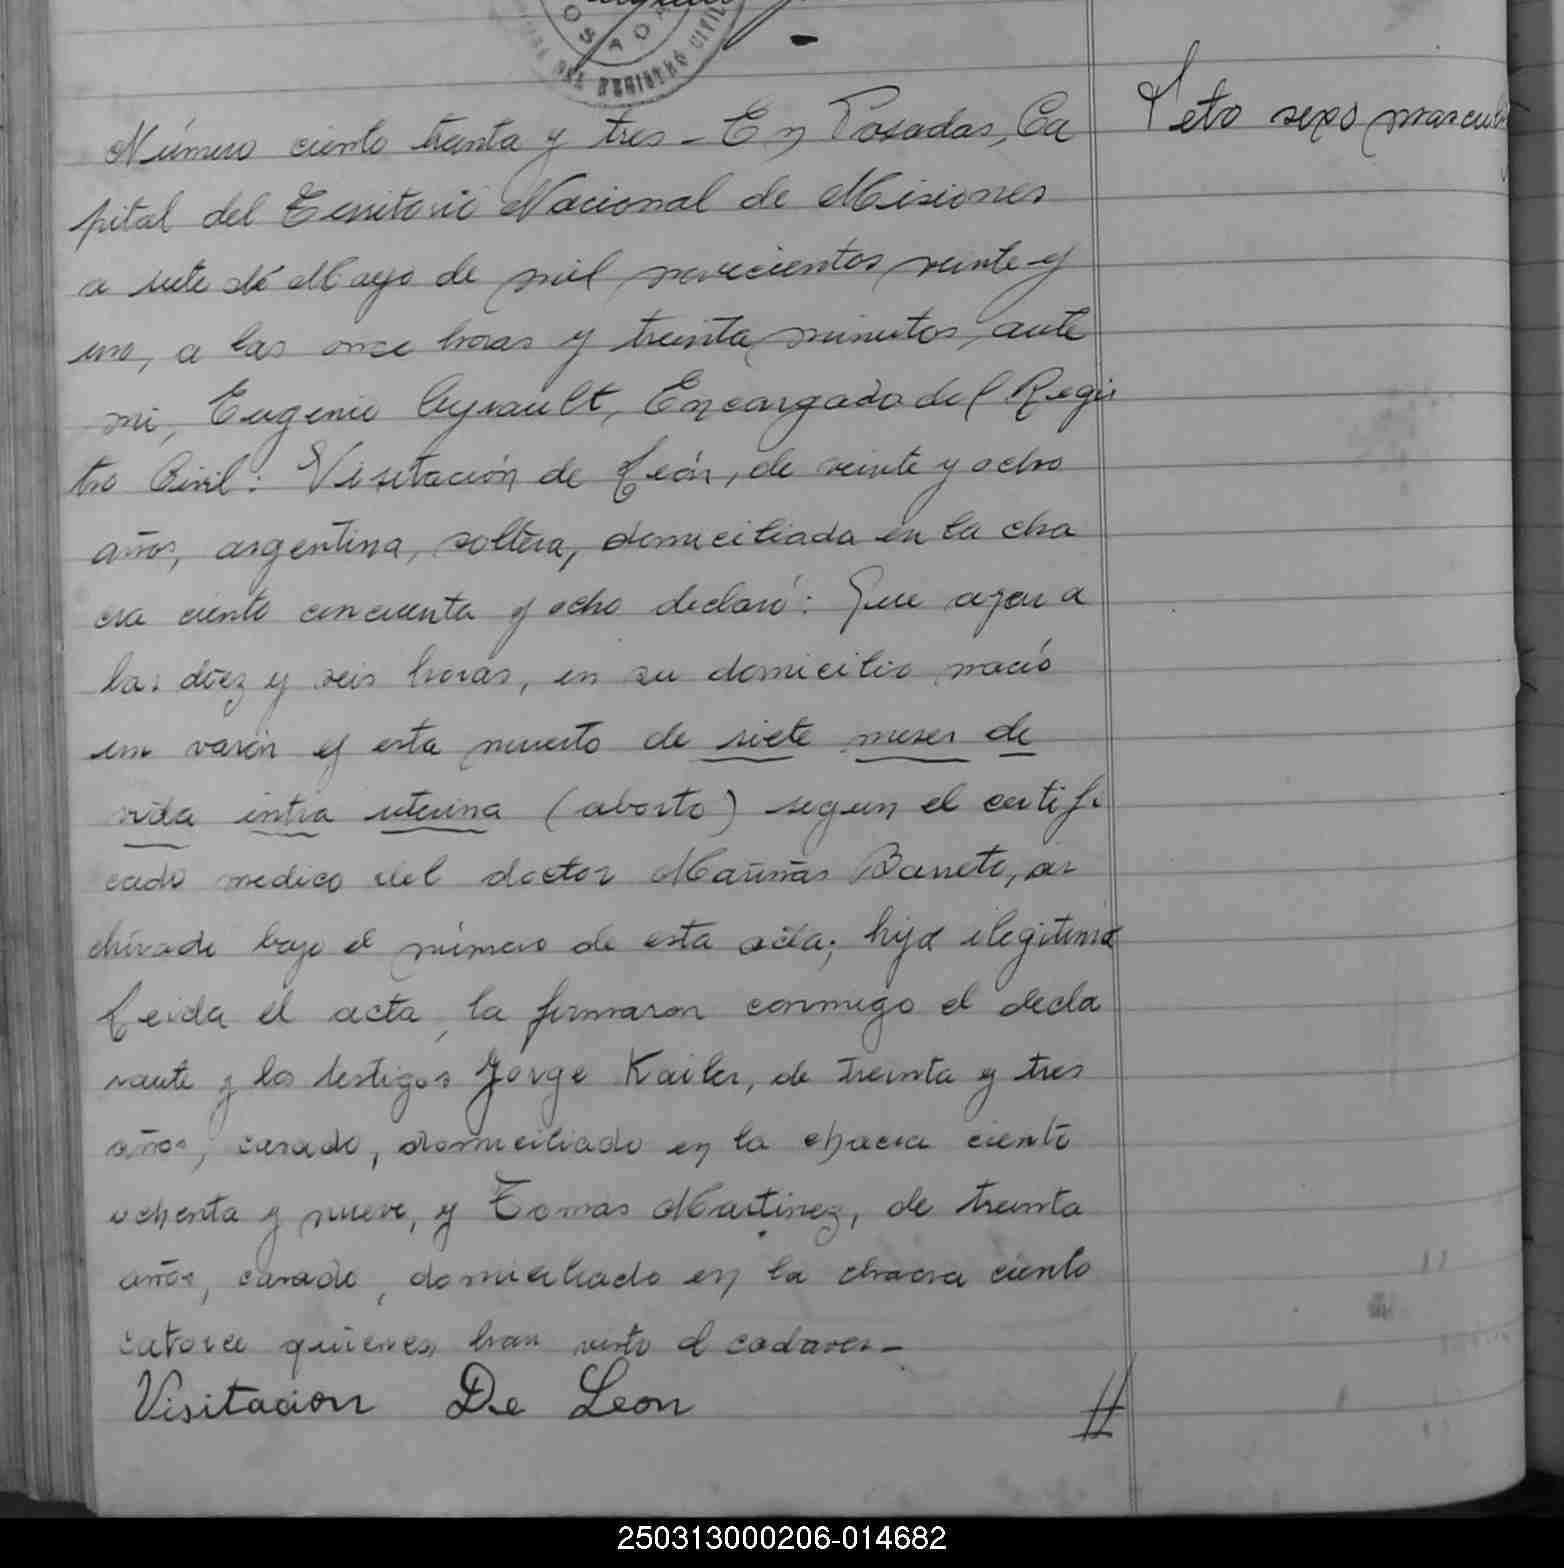 OSAD
DEL REGISTRO CIVIL
Número ciento treinta y tres - En Posadas, Ca
pital del Territorio Nacional de Misiones
a siete de Mayo de mil novecientos veinte y
uno, a las once horas y treinta minutos, ante
mi, Eugenio Ayrault, Encargado del Regis
tro Civil: Visitación de León, de veinte y ocho
años, argentina, soltera, domiciliada en la cha
cra ciento cincuenta y ocho declaró: Que ayer a
las diez y seis horas, en su domicilio nació
un varón y esta muerto de siete meses de
vida intra uterina (aborto) segun el certifi
cado medico del doctor Mariñas Barreto, ar
chivado bajo el número de esta acta; hijo ilegitimo
Leida el acta, la firmaron conmigo el decla
rante y los testigos Jorge Kailer, de treinta y tres
años, casado, domiciliado en la chacra ciento
ochenta y nueve, y Tomas Martinez, de treinta
años, casado, domiciliado en la chacra ciento
catorce quienes han visto el cadaver-
Visitacion De Leon
Feto sexo masculi
250313000206-014682